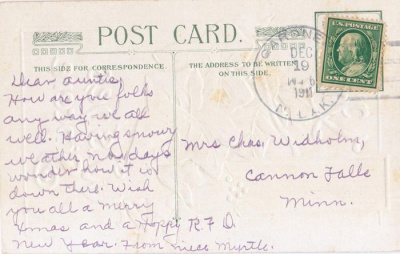 POST CARD.
THIS SIDE FOR CORRESPONDENCE.
THE ADDRESS TO BE WRITTEN
ON THIS SIDE.
DEC
19
1911
MINN.
U.S. POSTAGE
ONE CENT
Dear Auntie:
How are you folks
any way we all
well. Having snowy
weather now days
wonder how it is
down there. Wish
you all a merry
Xmas and a Happy
New Year. From niece Myrtle.
Mrs Chas. Widholm,
Cannon Falls
Minn.
R.F.D.